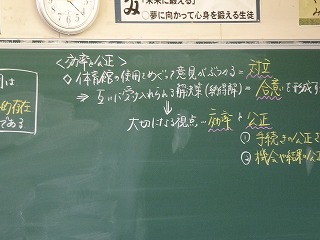 「未来に鍛える」
○夢に向かって心身を鍛える生徒
<効率と公正>
◇体育館の使用をめぐって意見がぶつかる=対立
⇒ 互いに受け入れられる解決策(納得解)=合意を形成す
↓
大切になる視点…効率と公正
① 手続きの公正さ
② 機会や結果の公正
は
め存在
である